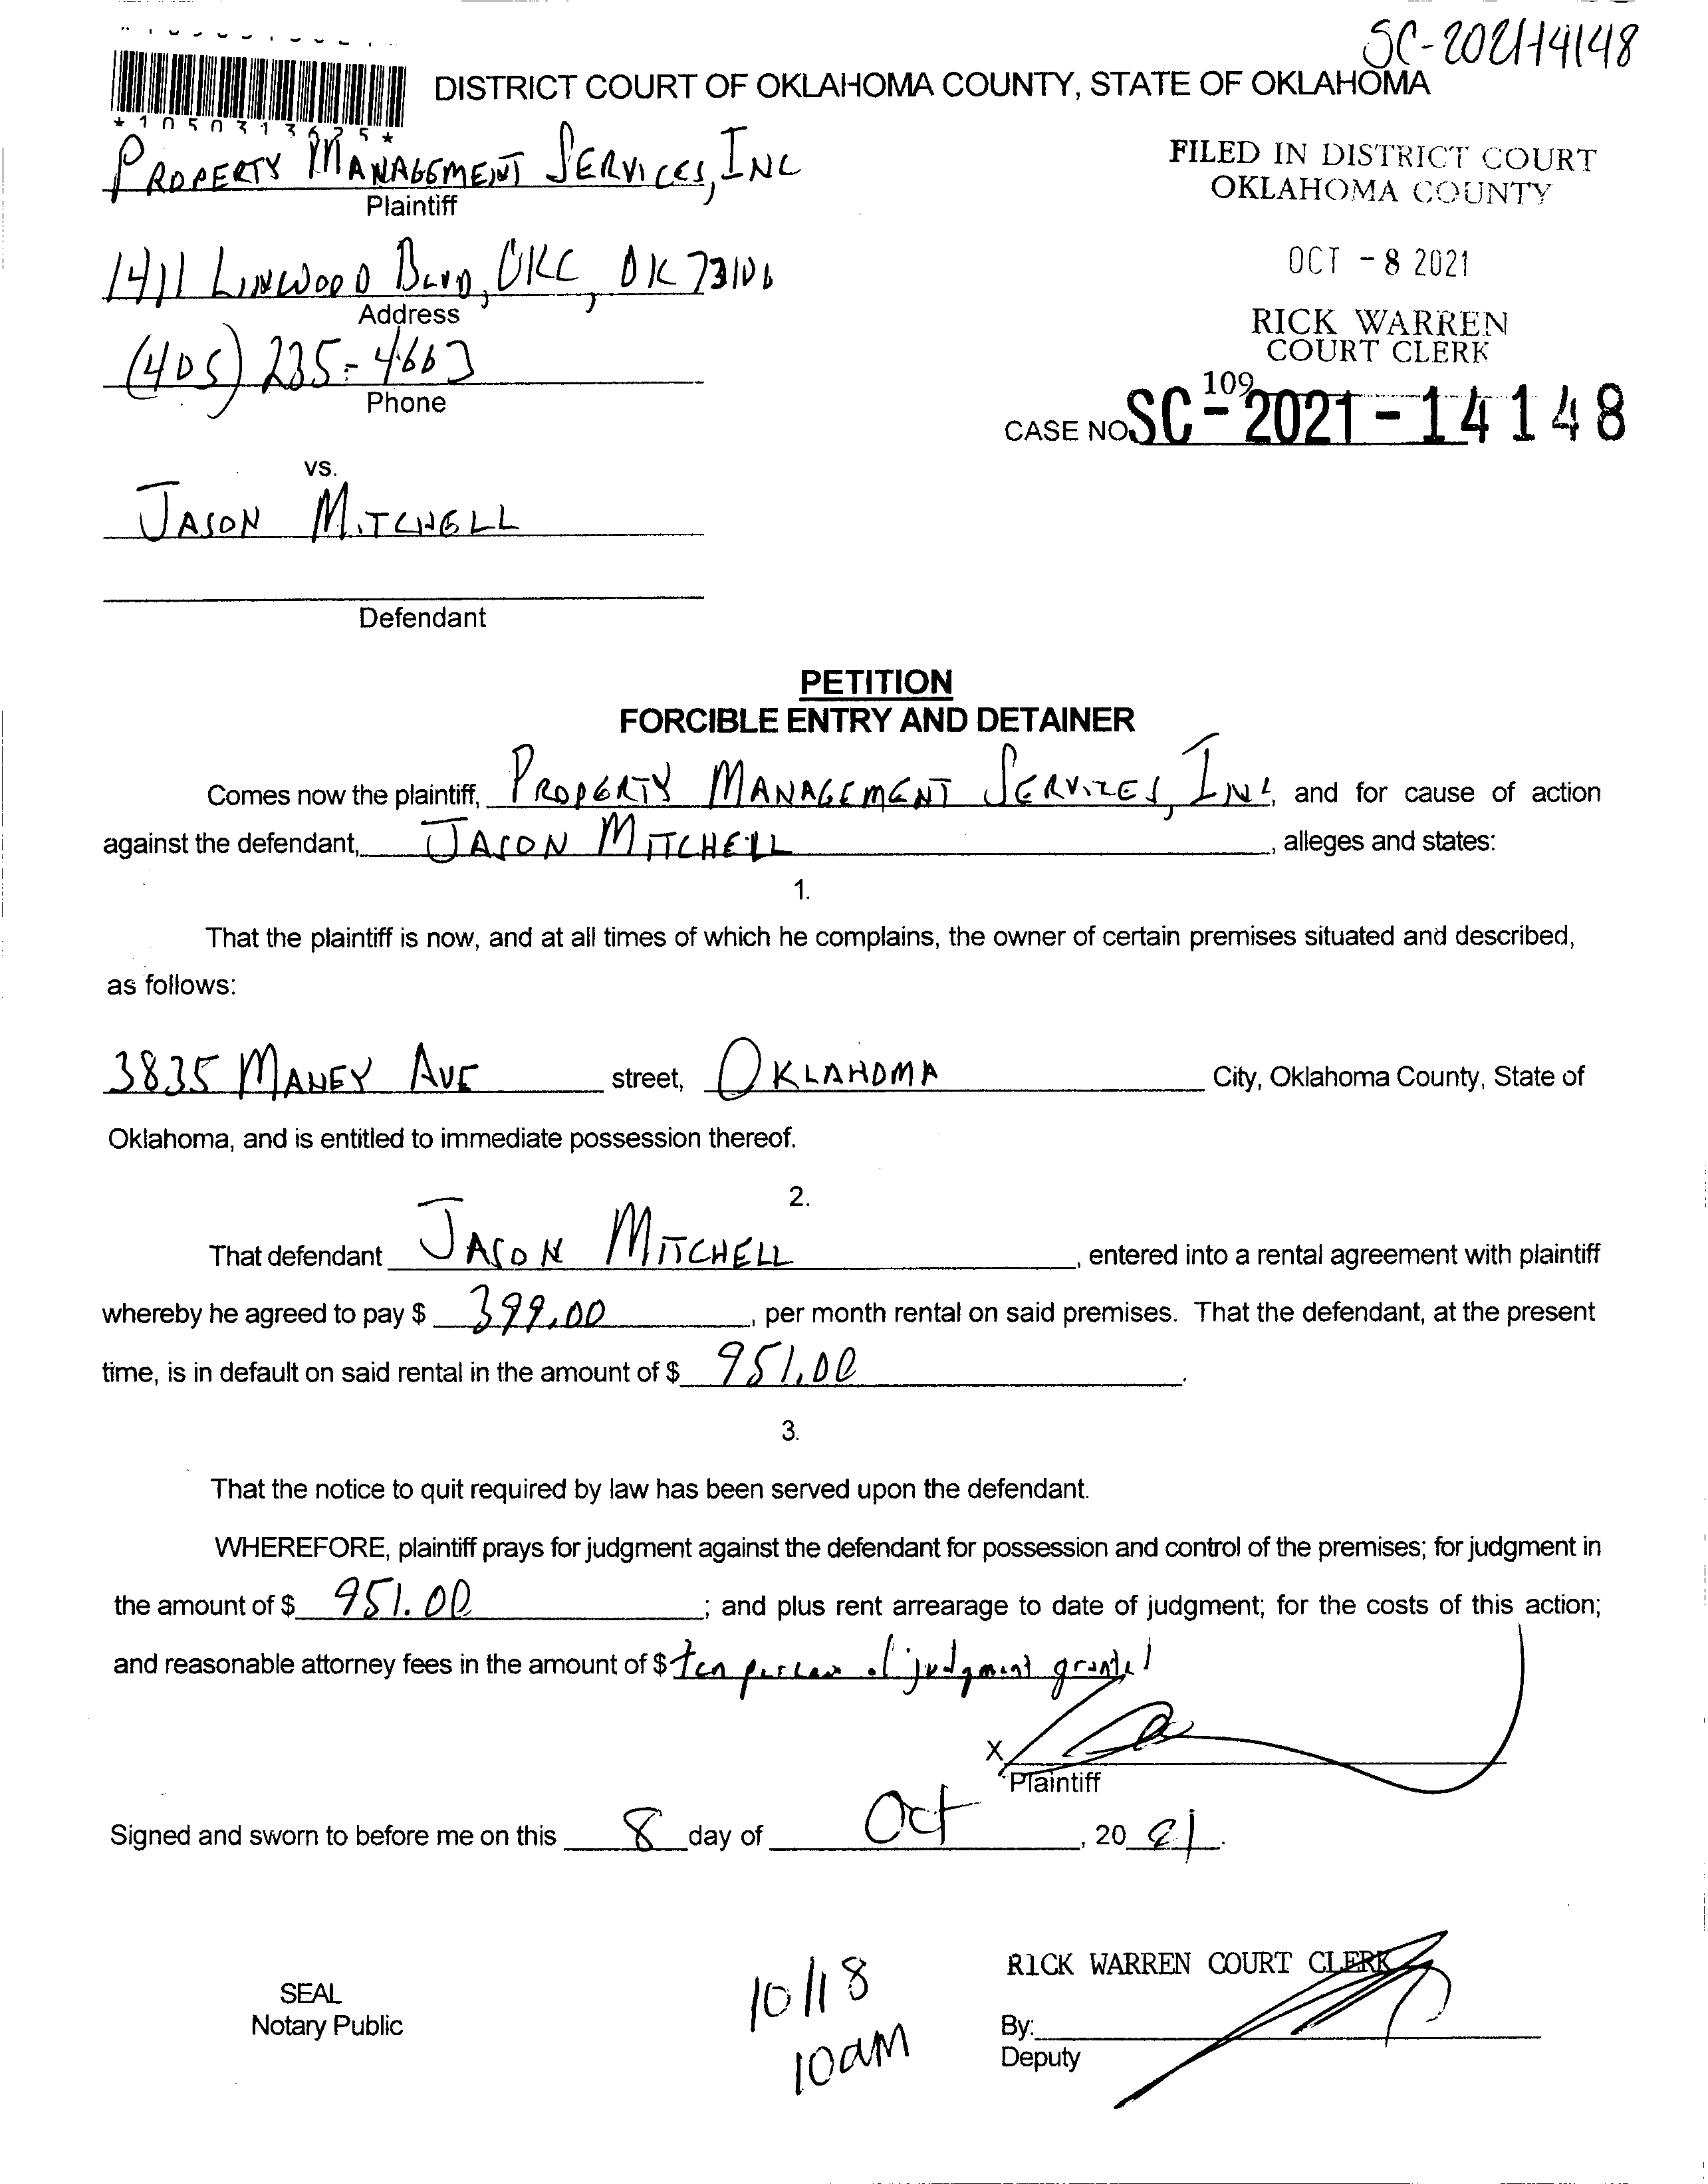 SC-2021-14148
DISTRICT COURT OF OKLAHOMA COUNTY, STATE OF OKLAHOMA
*1050313625*
PROPERTY MANAGEMENT SERVICES, INC
Plaintiff
FILED IN DISTRICT COURT
OKLAHOMA COUNTY
1411 LINWOOD BLVD, OKC, OK 73106
Address
OCT - 8 2021
(405) 235-4663
Phone
RICK WARREN
COURT CLERK
109
CASE NO. SC-2021-14148
vs.
JASON MITCHELL
Defendant
PETITION
FORCIBLE ENTRY AND DETAINER
Comes now the plaintiff, PROPERTY MANAGEMENT SERVICES, INC, and for cause of action
against the defendant, JASON MITCHELL, alleges and states:
1.
That the plaintiff is now, and at all times of which he complains, the owner of certain premises situated and described,
as follows:
3835 MANEY AVE street, OKLAHOMA City, Oklahoma County, State of
Oklahoma, and is entitled to immediate possession thereof.
2.
That defendant JASON MITCHELL, entered into a rental agreement with plaintiff
whereby he agreed to pay $ 399.00, per month rental on said premises. That the defendant, at the present
time, is in default on said rental in the amount of $ 951.00.
3.
That the notice to quit required by law has been served upon the defendant.
WHEREFORE, plaintiff prays for judgment against the defendant for possession and control of the premises; for judgment in
the amount of $ 951.00; and plus rent arrearage to date of judgment; for the costs of this action;
and reasonable attorney fees in the amount of $ ten percent of judgment granted
X
Plaintiff
Signed and sworn to before me on this 8 day of Oct, 20 21.
SEAL
Notary Public
10/18
10am
RICK WARREN COURT CLERK
By:
Deputy